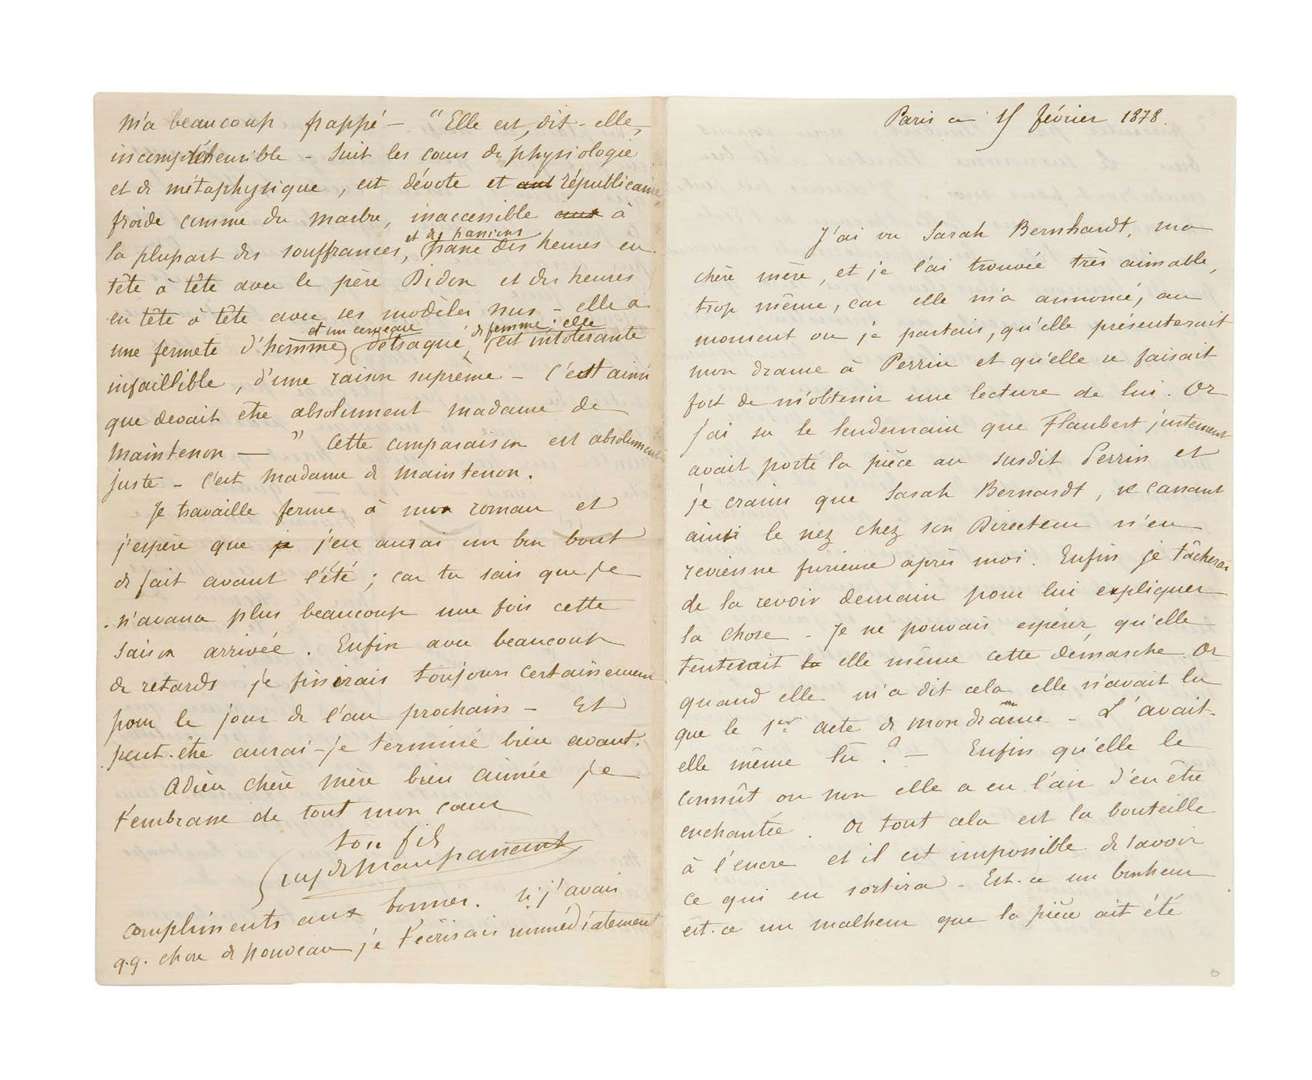 Paris ce 15 février 1878.
J'ai vu Sarah Bernhardt, ma
chère mère, et je l'ai trouvée très aimable,
trop même, car elle m'a annoncé, au
moment où je partais, qu'elle présenterait
mon drame à Perrin et qu'elle se faisait
fort de m'obtenir une lecture de lui. Or
j'ai su le lendemain que Flaubert justement
avait porté la pièce au susdit Perrin et
je crains que Sarah Bernardt, se cassant
ainsi le nez chez son Directeur n'en
revienne furieuse après moi. Enfin je tâcherai
de la revoir demain pour lui expliquer
la chose - Je ne pouvais espérer qu'elle
tenterait elle même cette démarche. Or
quand elle m'a dit cela elle n'avait lu
que le 1er acte de mon drame - L'avait-
elle même lu ? - Enfin qu'elle le
connût ou non elle a eu l'air d'en être
enchantée. Or tout cela est la bouteille
à l'encre et il est impossible de savoir
ce qui en sortira - Est-ce un bonheur
est-ce un malheur que la pièce ait été
m'a beaucoup frappé - "Elle est, dit-elle,
incompréhensible - suit les cours de physiologie
et de métaphysique, est dévote et républicaine
froide comme du marbre, inaccessible à
la plupart des souffrances, et des passions passe des heures en
tête à tête avec le père Didon et des heures
en tête à tête avec ses modèles nus - elle a
une fermeté d'homme et un cerveau détraqué de femme ; elle est intolérante
infaillible, d'une raison suprême - C'est ainsi
que devait être absolument madame de
Maintenon - " Cette comparaison est absolument
juste - c'est madame de Maintenon.
Je travaille ferme à mon roman et
j'espère que j'en aurai un bon bout
de fait avant l'été ; car tu sais que je
n'avance plus beaucoup une fois cette
saison arrivée. Enfin avec beaucoup
de retards je finirais toujours certainement
pour le jour de l'an prochain - Et
peut-être aurai-je terminé bien avant.
Adieu chère mère bien aimée je
t'embrasse de tout mon cœur
ton fils
Guy de Maupassant
Compliments aux bonnes. Si j'avais
q.q. chose de nouveau je t'écrirais immédiatement